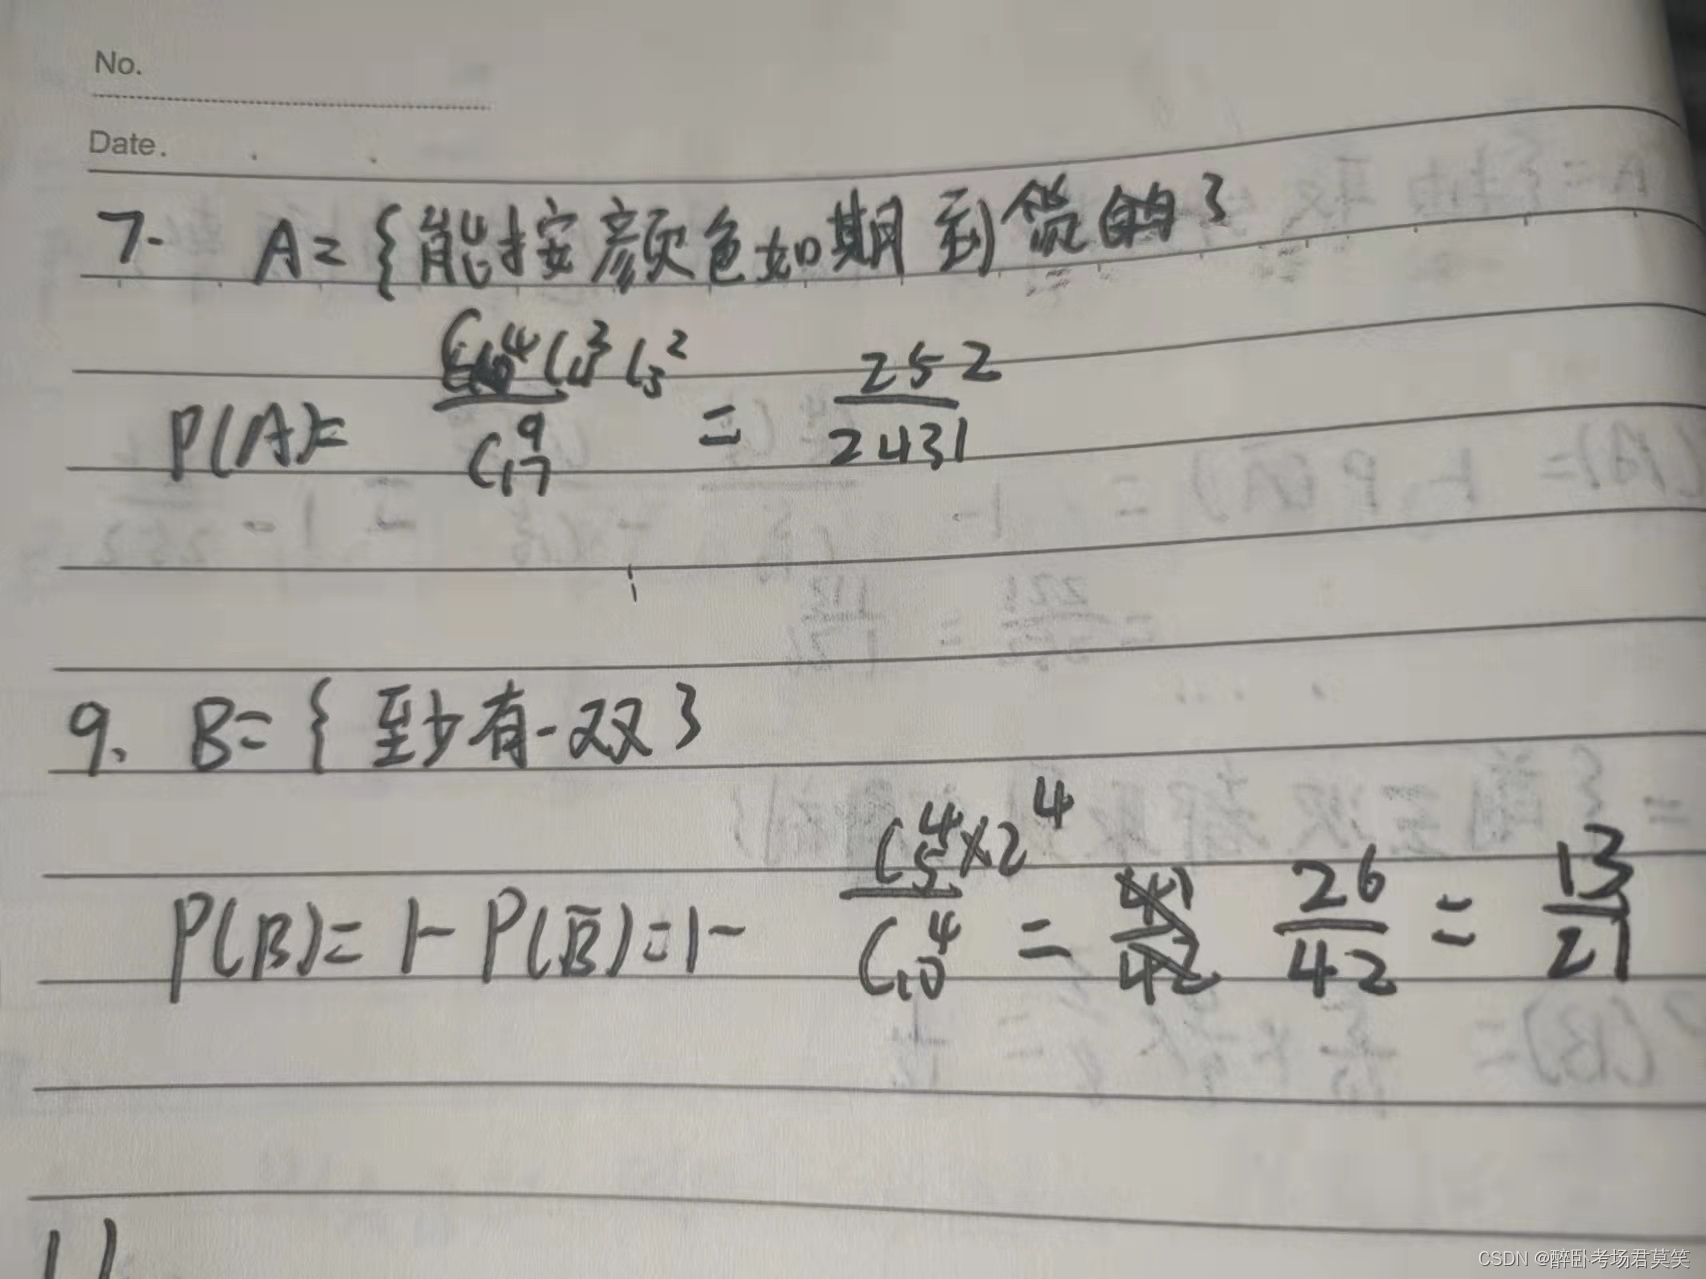 No.
Date.
7. A={能按颜色如期到货的}
P(A)= C₁₀⁴C₄³C₃² / C₁₇⁹ = 252/2431
9. B={至少有一双}
P(B)=1-P(B̄)=1- C₅⁴×2⁴ / C₁₀⁴ = 26/42 = 13/21
11
CSDN @醉卧考场君莫笑